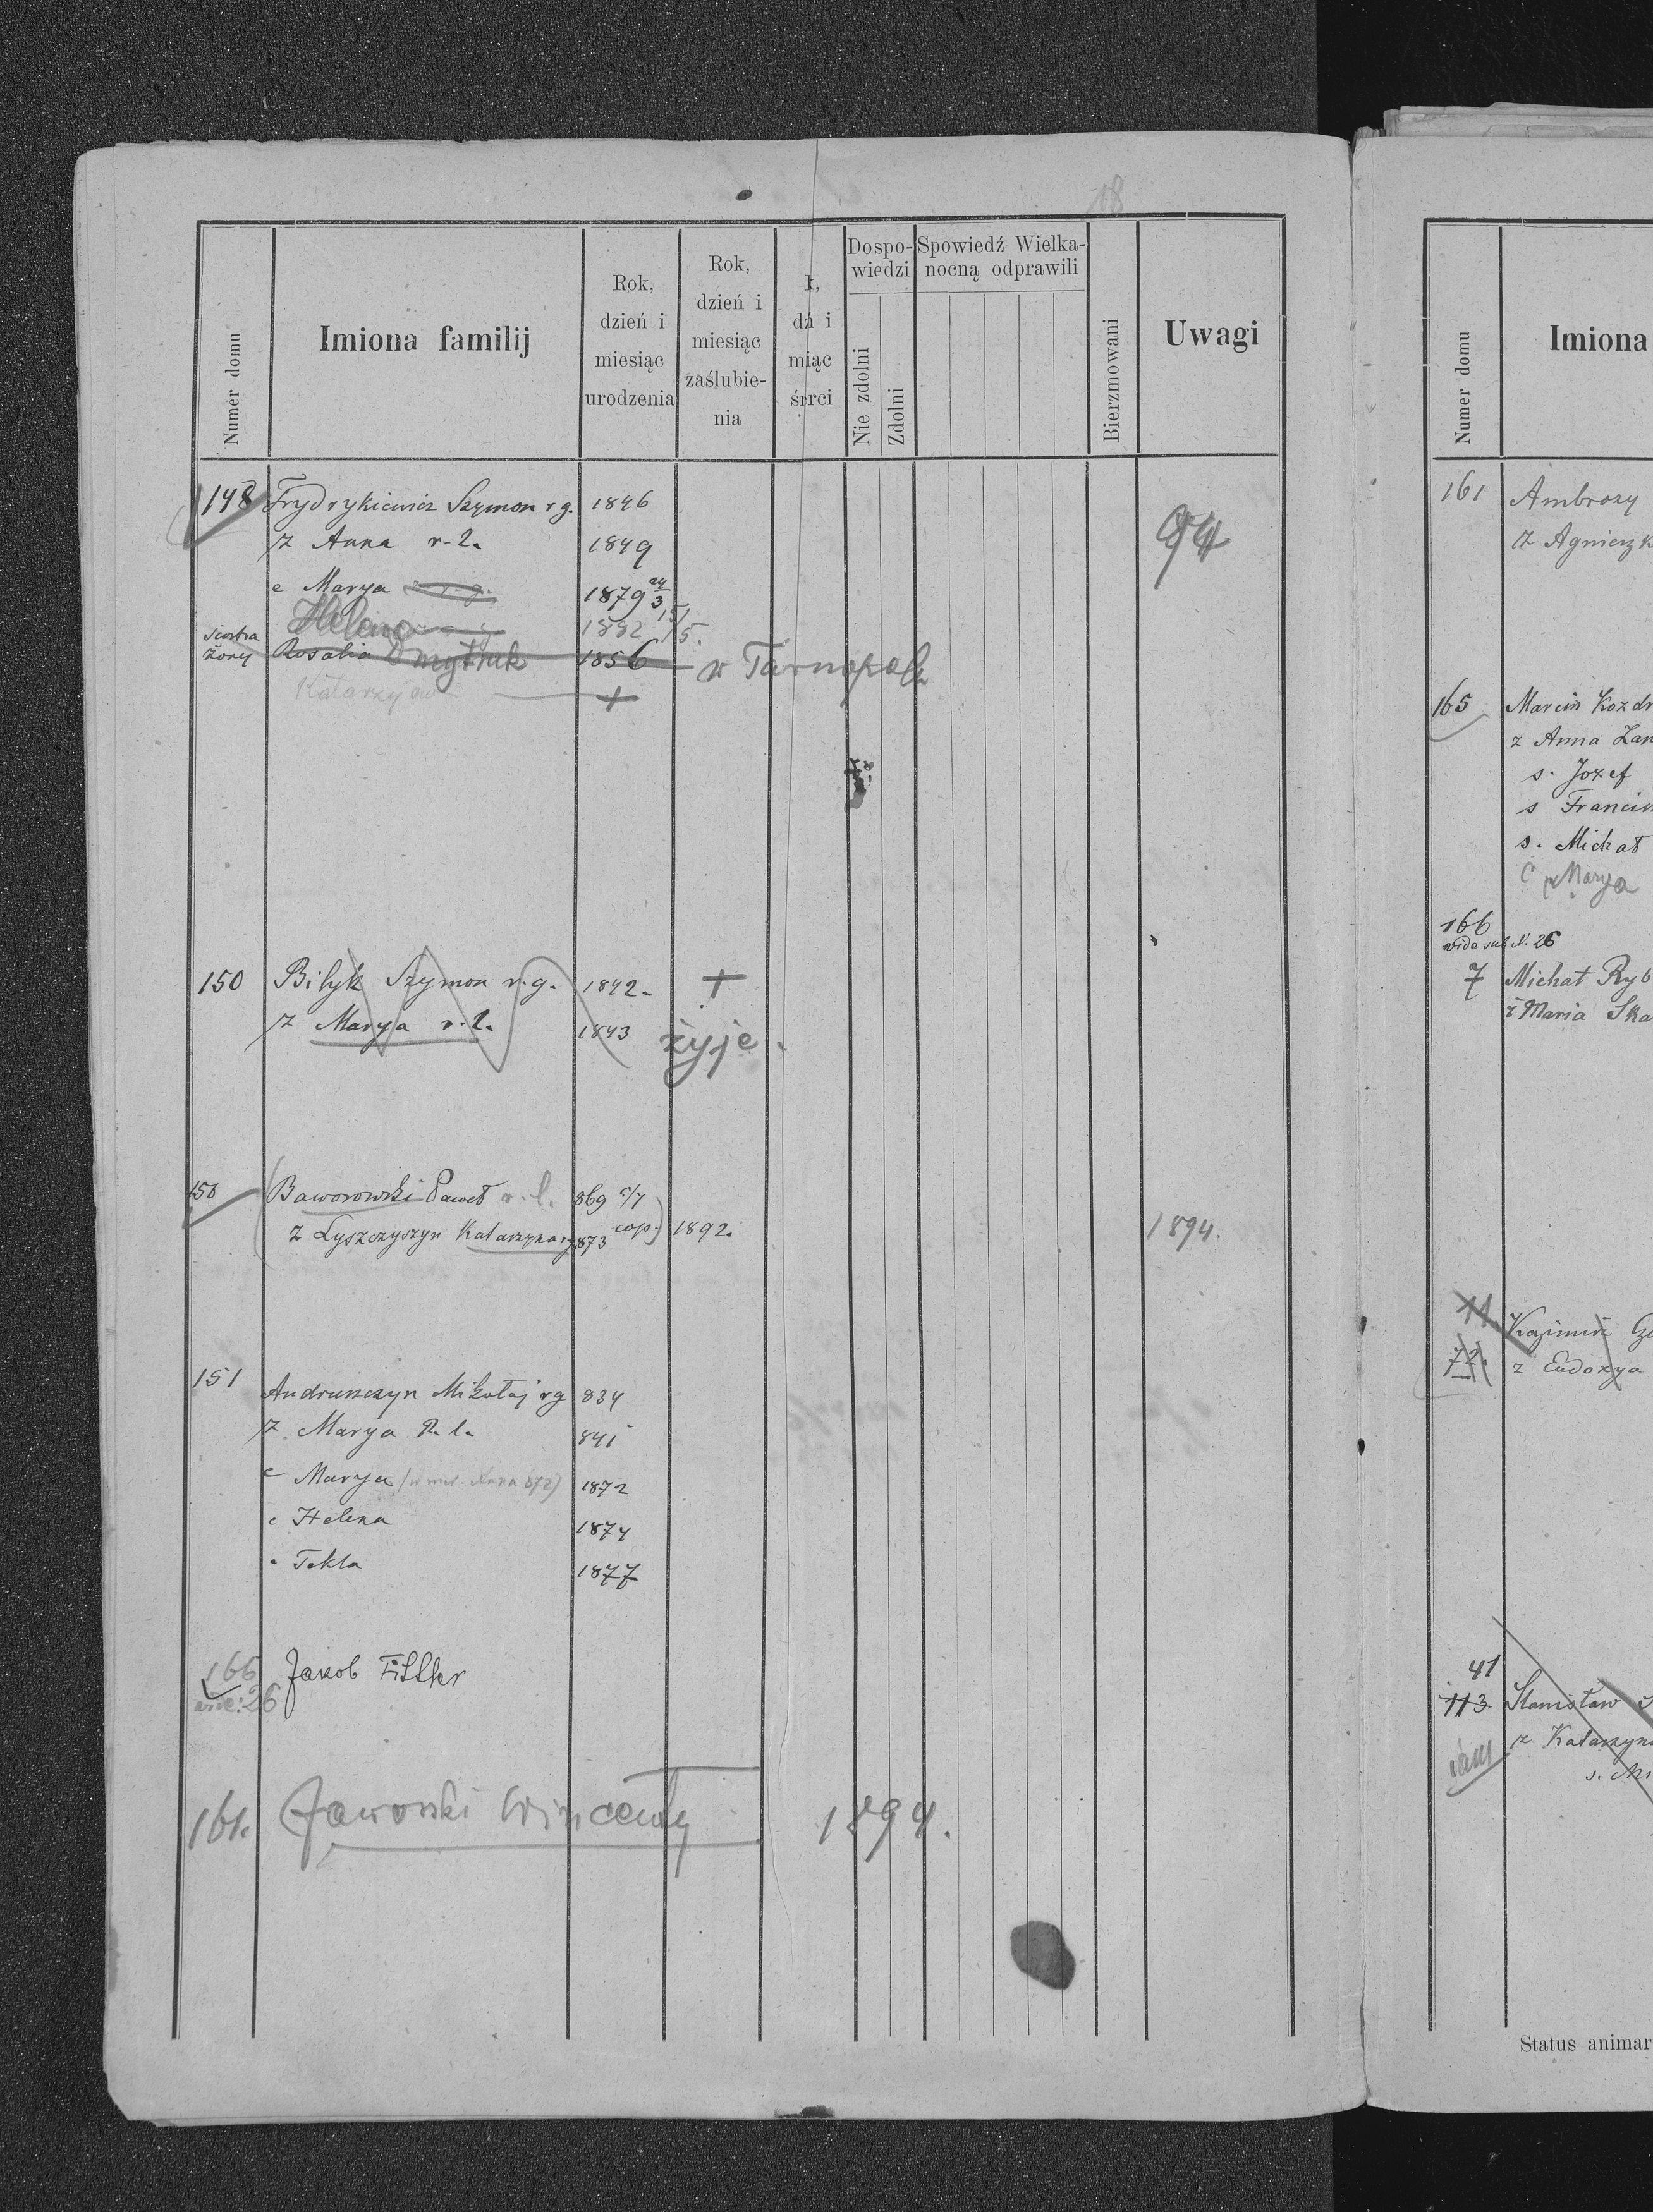 18
Numer domu
Imiona familij
Rok,
dzień i
miesiąc
urodzenia
Rok,
dzień i
miesiąc
zaślubie-
nia
k,
dń i
miąc
śrrci
Dospo-
wiedzi
Nie zdolni
Zdolni
Spowiedź Wielka-
nocną odprawili
Bierzmowani
Uwagi
148 Frydrykiewicz Szymon r g. 1846
ż Anna r. l. 1849 94
c Marya 1879 24/3
Helena 1882 15/5.
siostra
żony Rosalia Dmytruk 1856 w Tarnopolu
Katarzyna +
150 Bilyk Szymon r. g. 1842. +
ż Marya r. l. 1843 żyje.
150 Baworowski Paweł r. l. 869 5/7
ż Łyszczyszyn Katarzyna rg. 873 cop.) 1892. 1894.
151 Andrunczyn Mikołaj rg 834
ż. Marya R. l. 841
c Marya Anna 872) 1872
c Helena 1874
c Tekla 1877
166 Jakob
vide: 26
161. Jaworski Wincenty 1894.
Numer domu
Imiona
161 Ambrozy
ż Agnieszk
165 Marcin Kozdr
ż Anna Zan
s. Jozef
s Francis
s. Michał
c Marya
166
vide sub N. 26
7 Michał Ryb
ż Maria Ska
11. Kazimirz
72. ż Eudoxya
41
113. Stanisław
iam ż Katarzyn
s. Mi
Status animar